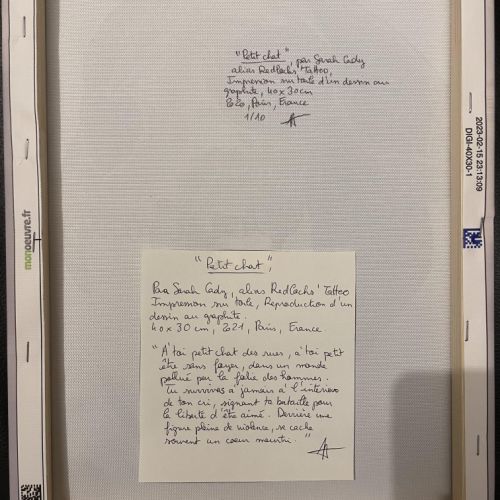 "Petit chat", par Sarah Cady
alias RedLachs' Tattoo,
Impression sur toile d'un dessin au
graphite, 40 x 30 cm
2020, Paris, France
1/10
monoeuvre.fr
2023-02-15 23:13:09
DIGI-40X30-1
"Petit chat",
Par Sarah Cady, alias RedLachs' Tattoo
Impression sur toile, Reproduction d'un
dessin au graphite.
40 x 30 cm, 2021, Paris, France
"A toi petit chat des rues, à toi petit
être sans foyer, dans un monde
pollué par la folie des hommes.
Tu survives à jamais à l'intérieur
de ton cri, signant ta bataille pour
la liberté d'être aimé. Derrière une
figure pleine de violence, se cache
souvent un coeur meurtri."